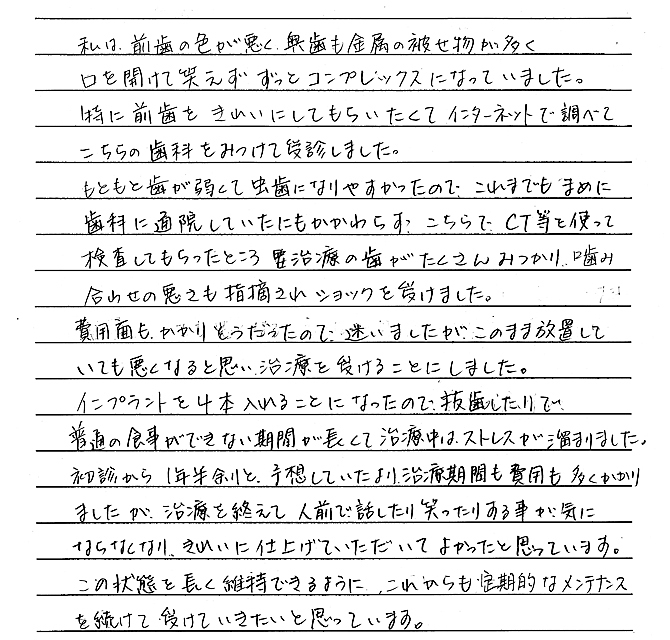 私は、前歯の色が悪く、奥歯も金属の被せ物が多く
口を開けて笑えず ずっとコンプレックスになっていました。
特に前歯を きれいにしてもらいたくて インターネットで調べて
こちらの歯科をみつけて受診しました。
もともと歯が弱くて虫歯になりやすかったので、これまでもまめに
歯科に通院していたにもかかわらず、こちらで、CT等を使って
検査してもらったところ 要治療の歯がたくさんみつかり、噛み
合わせの悪さも指摘され ショックを受けました。
費用面も、かかりそうだったので、迷いましたが、このまま放置して
いても悪くなると思い、治療を受けることにしました。
インプラントを4本入れることになったので、抜歯したりで、
普通の食事ができない期間が長くて 治療中は、ストレスが溜まりました。
初診から 1年半余りと、予想していたより、治療期間も費用も多くかかり
ましたが、治療を終えて 人前で話したり笑ったりする事が気に
ならなくなり、きれいに仕上げていただいて よかったと思っています。
この状態を長く維持できるように、これからも定期的なメンテナンス
を続けて 受けていきたいと思っています。